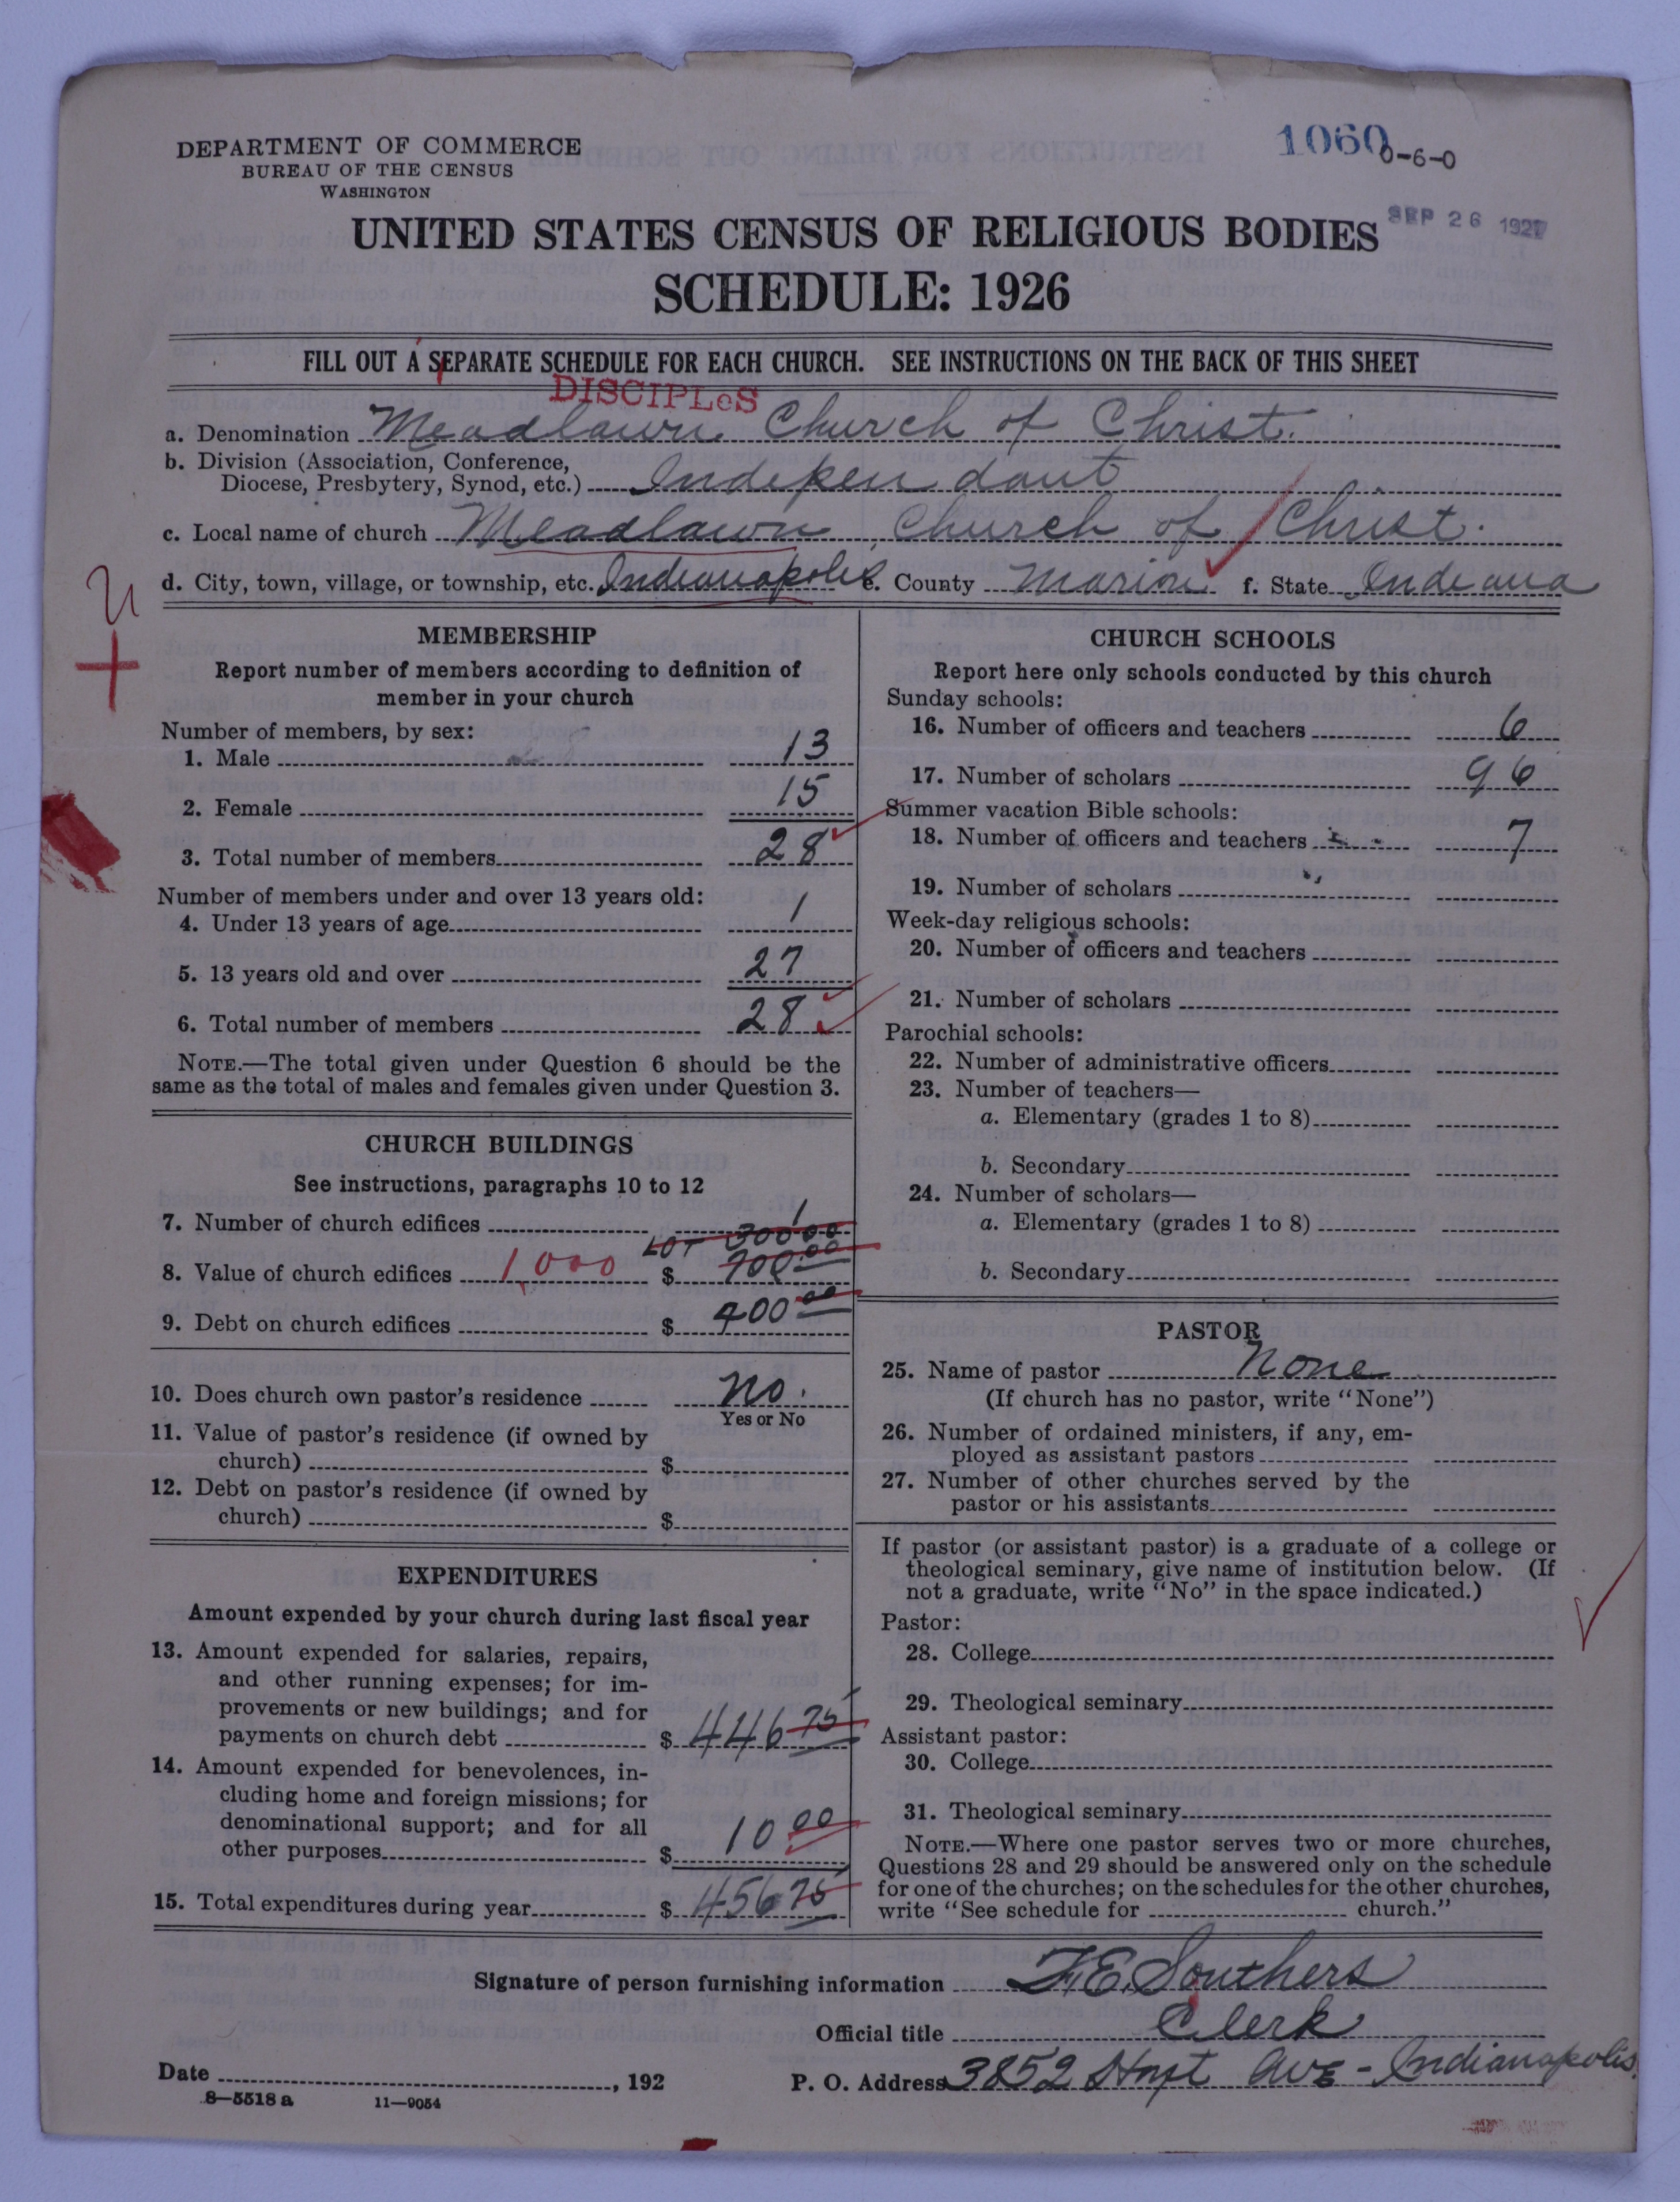 1060
0-6-0
DEPARTMENT OF COMMERCE
BUREAU OF THE CENSUS
WASHINGTON
SEP 26 1927
UNITED STATES CENSUS OF RELIGIOUS BODIES
SCHEDULE: 1926
FILL OUT A SEPARATE SCHEDULE FOR EACH CHURCH. SEE INSTRUCTIONS ON THE BACK OF THIS SHEET
DISCIPLeS
a. Denomination Meadlawn Church of Christ.
b. Division (Association, Conference,
Diocese, Presbytery, Synod, etc.) Indepen dant
c. Local name of church Meadlawn Church of Christ.
d. City, town, village, or township, etc. Indianapolis e. County Marion f. State Indiana
MEMBERSHIP
Report number of members according to definition of
member in your church
Number of members, by sex:
1. Male 13
2. Female 15
3. Total number of members 28
Number of members under and over 13 years old:
4. Under 13 years of age 1
5. 13 years old and over 27
6. Total number of members 28
NOTE.—The total given under Question 6 should be the
same as the total of males and females given under Question 3.
CHURCH BUILDINGS
See instructions, paragraphs 10 to 12
7. Number of church edifices 1
LOT 300 00
8. Value of church edifices 1,000 $ 700.00
9. Debt on church edifices $ 400 00
10. Does church own pastor's residence No.
Yes or No
11. Value of pastor's residence (if owned by
church) $
12. Debt on pastor's residence (if owned by
church) $
EXPENDITURES
Amount expended by your church during last fiscal year
13. Amount expended for salaries, repairs,
and other running expenses; for im-
provements or new buildings; and for
payments on church debt $ 446 75
14. Amount expended for benevolences, in-
cluding home and foreign missions; for
denominational support; and for all
other purposes $ 10 00
15. Total expenditures during year $ 456 75
CHURCH SCHOOLS
Report here only schools conducted by this church
Sunday schools:
16. Number of officers and teachers 6
17. Number of scholars 96
Summer vacation Bible schools:
18. Number of officers and teachers 7
19. Number of scholars
Week-day religious schools:
20. Number of officers and teachers
21. Number of scholars
Parochial schools:
22. Number of administrative officers
23. Number of teachers—
a. Elementary (grades 1 to 8)
b. Secondary
24. Number of scholars—
a. Elementary (grades 1 to 8)
b. Secondary
PASTOR
25. Name of pastor None
(If church has no pastor, write "None")
26. Number of ordained ministers, if any, em-
ployed as assistant pastors
27. Number of other churches served by the
pastor or his assistants
If pastor (or assistant pastor) is a graduate of a college or
theological seminary, give name of institution below. (If
not a graduate, write "No" in the space indicated.)
Pastor:
28. College
29. Theological seminary
Assistant pastor:
30. College
31. Theological seminary
NOTE.—Where one pastor serves two or more churches,
Questions 28 and 29 should be answered only on the schedule
for one of the churches; on the schedules for the other churches,
write "See schedule for church."
Signature of person furnishing information F. E. Southers
Official title Clerk
Date , 192 P. O. Address 3852 Ave - Indianapolis.
8—5518 a 11—9054